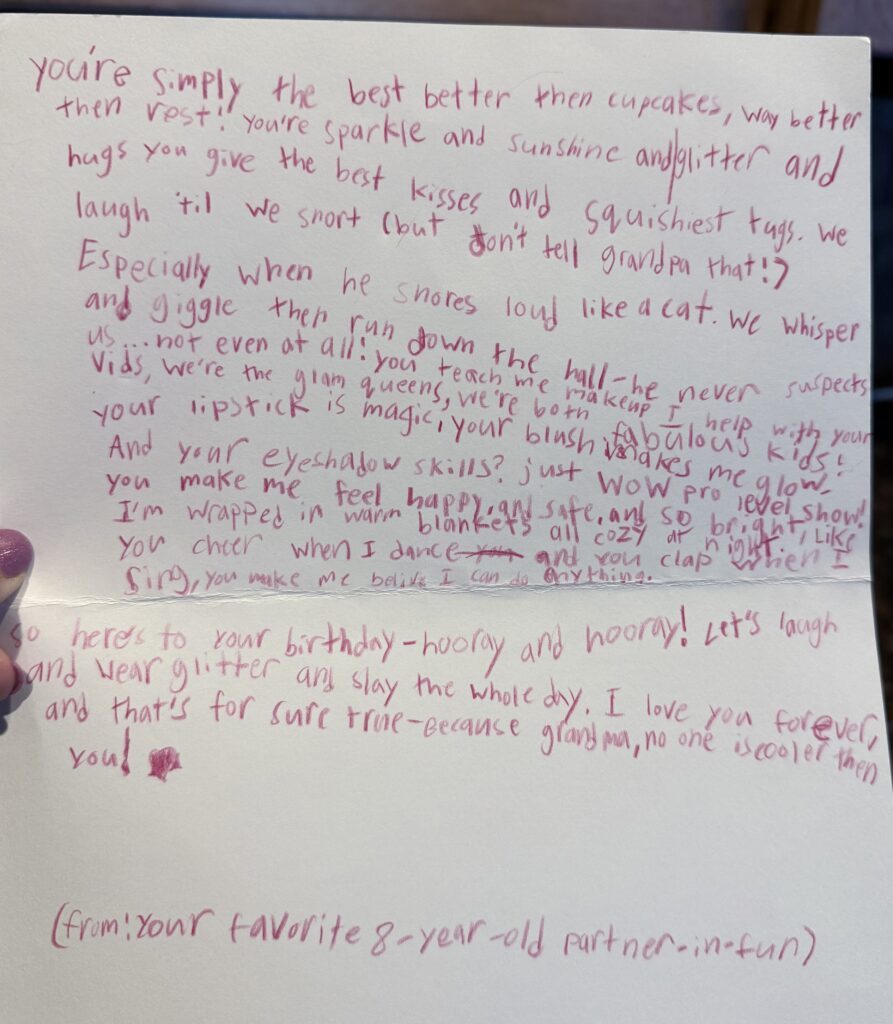 you're simply the best better then cupcakes, way better
then rest! you're sparkle and sunshine and glitter and
hugs you give the best kisses and squishiest tugs. we
laugh 'til we snort (but don't tell grandpa that!)
Especially when he snores loud like a cat. we whisper
and giggle then run down the hall-he never suspects
us...not even at all! you teach me makeup I help with your
vids, we're the glam queens, we're both fabulous kids!
your lipstick is magic, your blush makes me glow.
And your eyeshadow skills? just wow pro level show!
you make me feel happy, and safe, and so bright, like
I'm wrapped in warm blankets all cozy at night.
you cheer when I dance and you clap when I
sing, you make me belive I can do anything.
so here's to your birthday-hooray and hooray! Let's laugh
and wear glitter and slay the whole day. I love you forever,
and that's for sure true-Because grandma, no one is cooler then
you!
(from: Your favorite 8-year-old partner-in-fun)